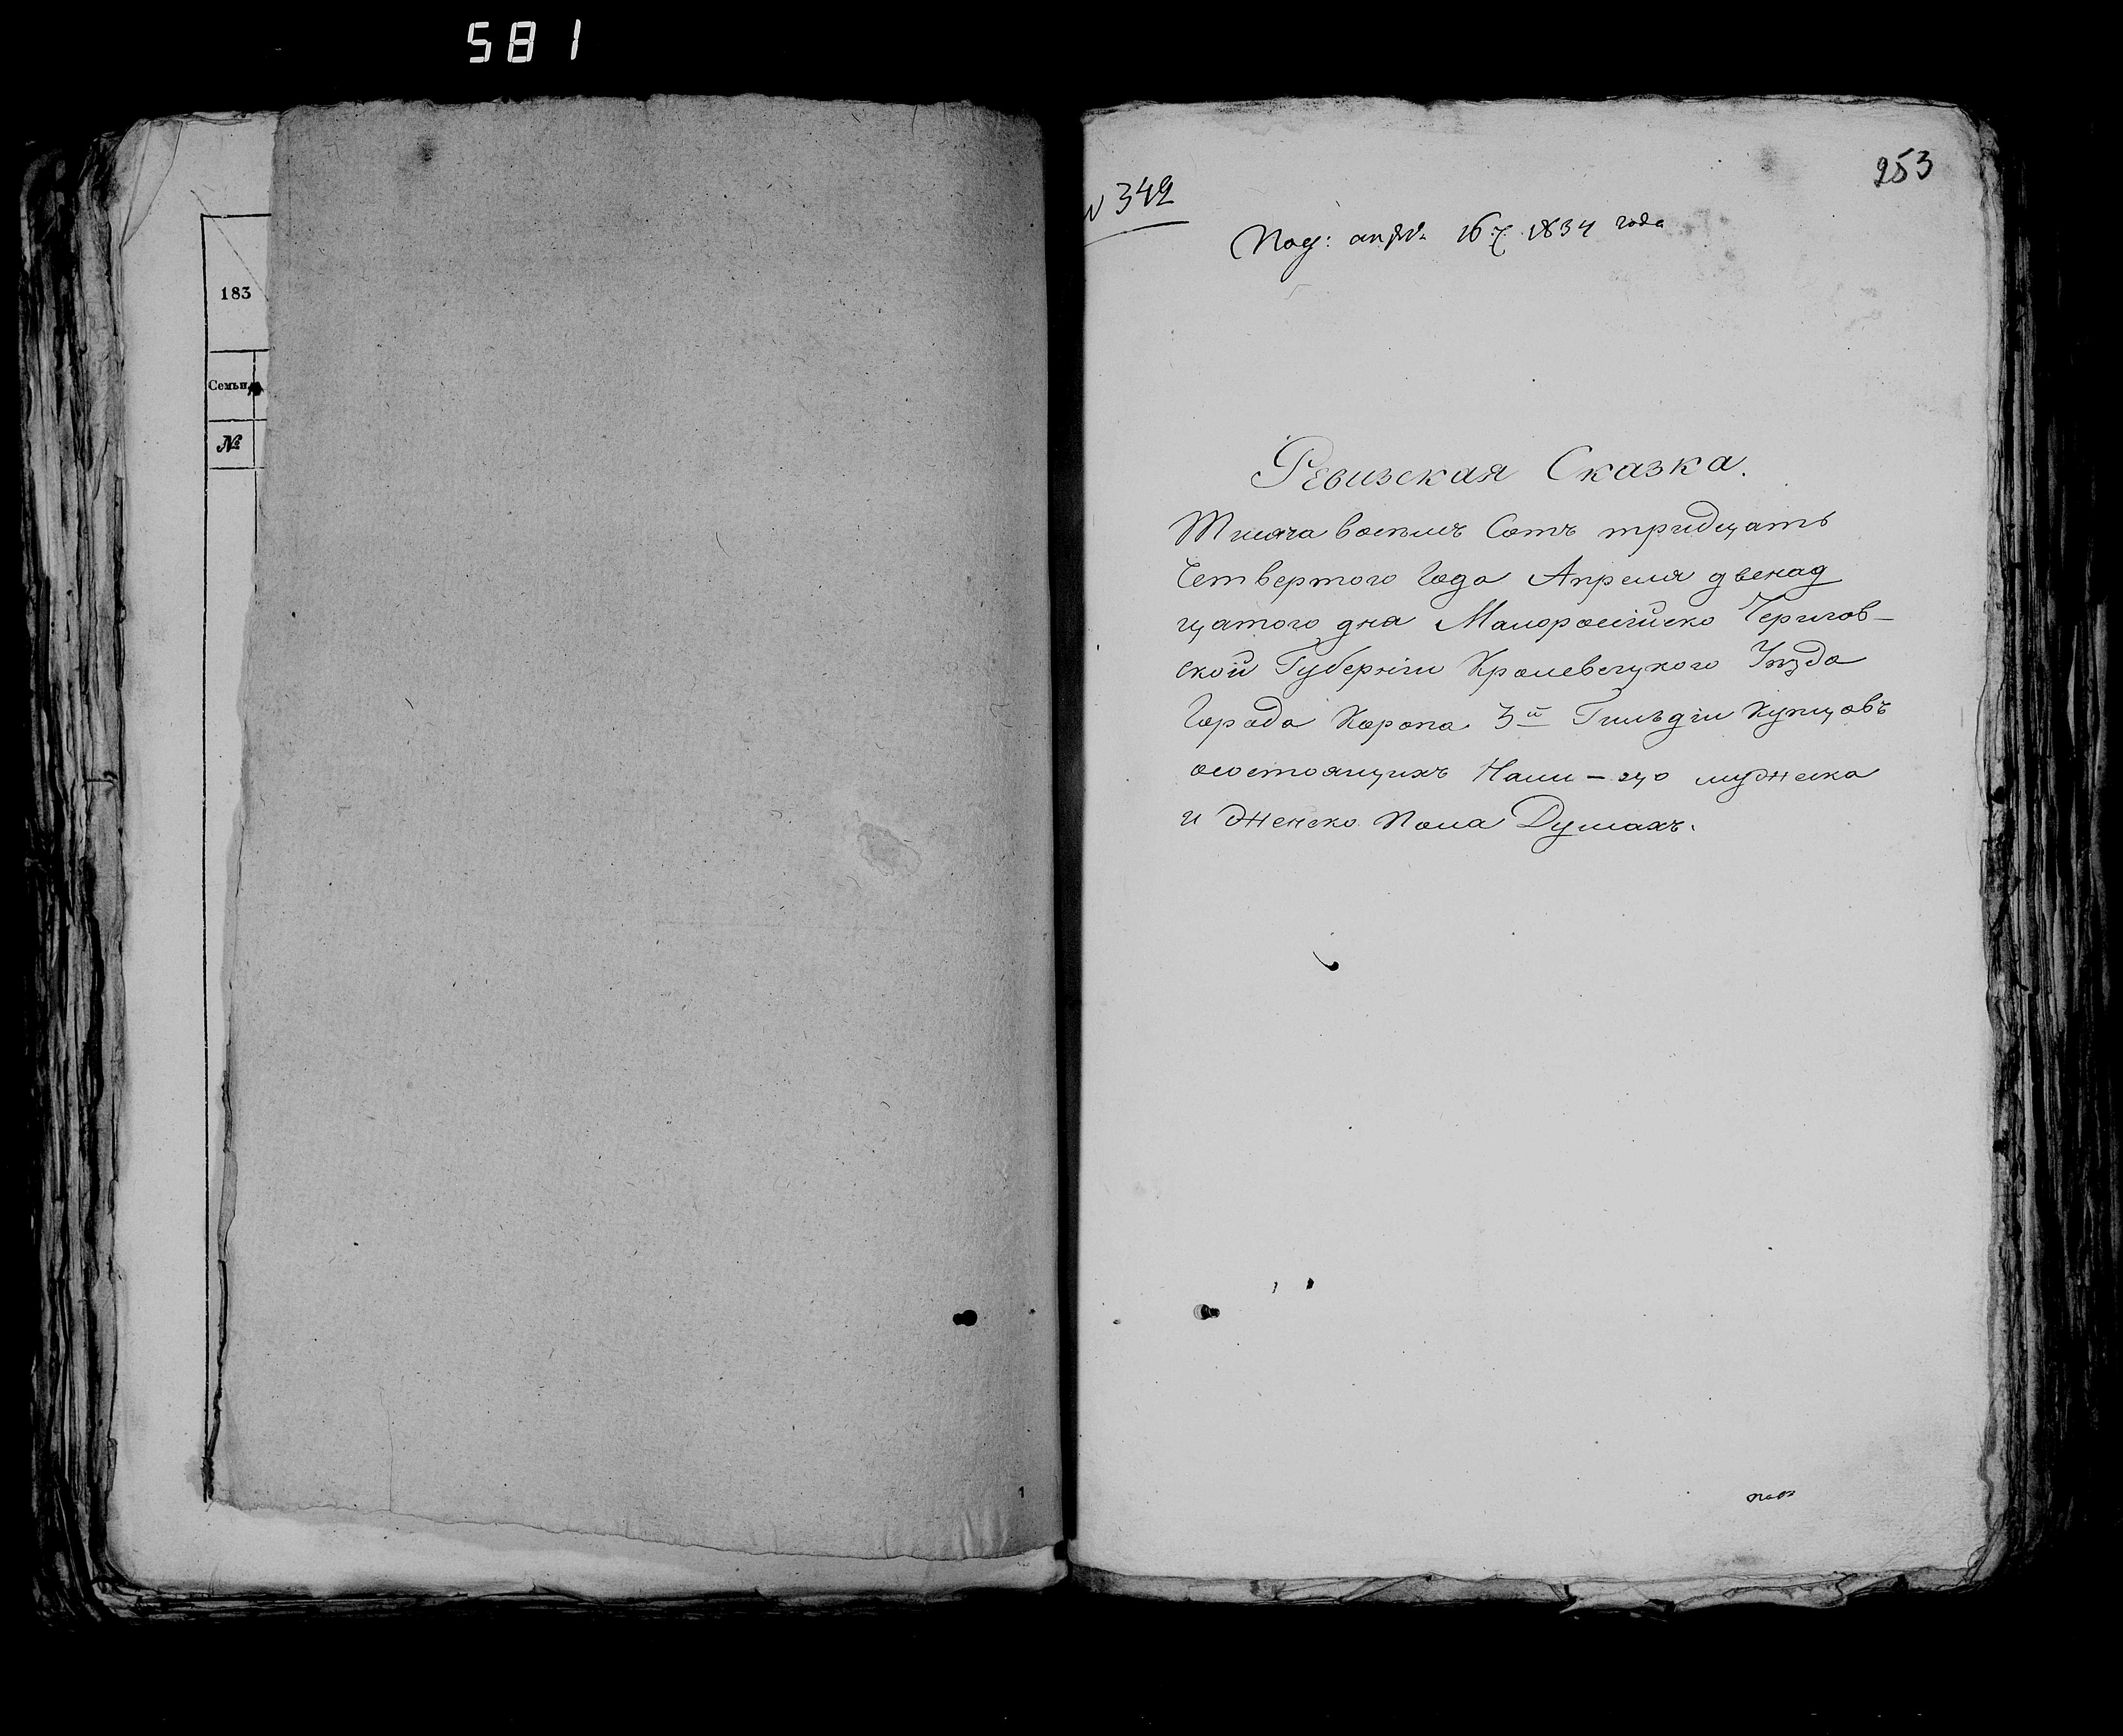 581
183
Семьи
№
N 342
253
Под: апрѣля 16 ч. 1834 года
Ревизская Сказка.
Тисяча восемъ Сотъ тридцать
Четвертого Года Апреля двенад
цатого дна Малоросійско Чернигов-
ской Губерніи Кролевецкого Уѣзда
Города Коропа 3й Гильдіи Купцовъ
осостоящихъ На лицо мужеска
и женско Пола Душахъ.